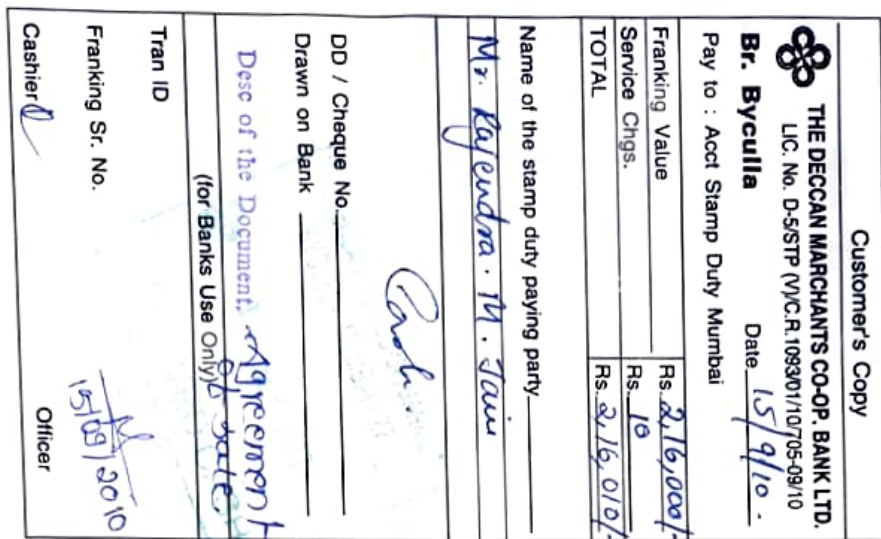 Customer's Copy
THE DECCAN MARCHANTS CO-OP. BANK LTD.
LIC. No. D-5/STP (V)/C.R.1093/01/10/705-09/10
Br. Byculla Date 15/9/10.
Pay to : Acct Stamp Duty Mumbai
Franking Value Rs. 2,16,000/-
Service Chgs. Rs. 10
TOTAL Rs. 2,16,010/-
Name of the stamp duty paying party
Mr. Rajendra. M. Jain
Cash.
DD / Cheque No.
Drawn on Bank
Desc of the Document. Agreement
of sale.
(for Banks Use Only)
Tran ID
Franking Sr. No.
15/09/2010
Cashier Officer